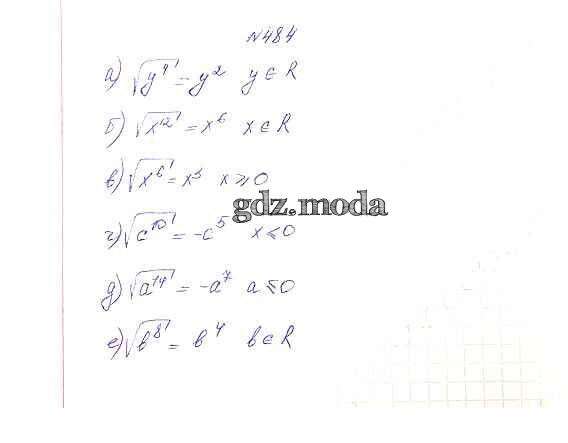 №484
а) √y⁴ = y² y ∈ R
б) √x¹² = x⁶ x ∈ R
в) √x⁶ = x³ x ⩾ 0
gdz.moda
г) √c¹⁰ = -c⁵ x ⩽ 0
д) √a¹⁴ = -a⁷ a ⩽ 0
е) √b⁸ = b⁴ b ∈ R